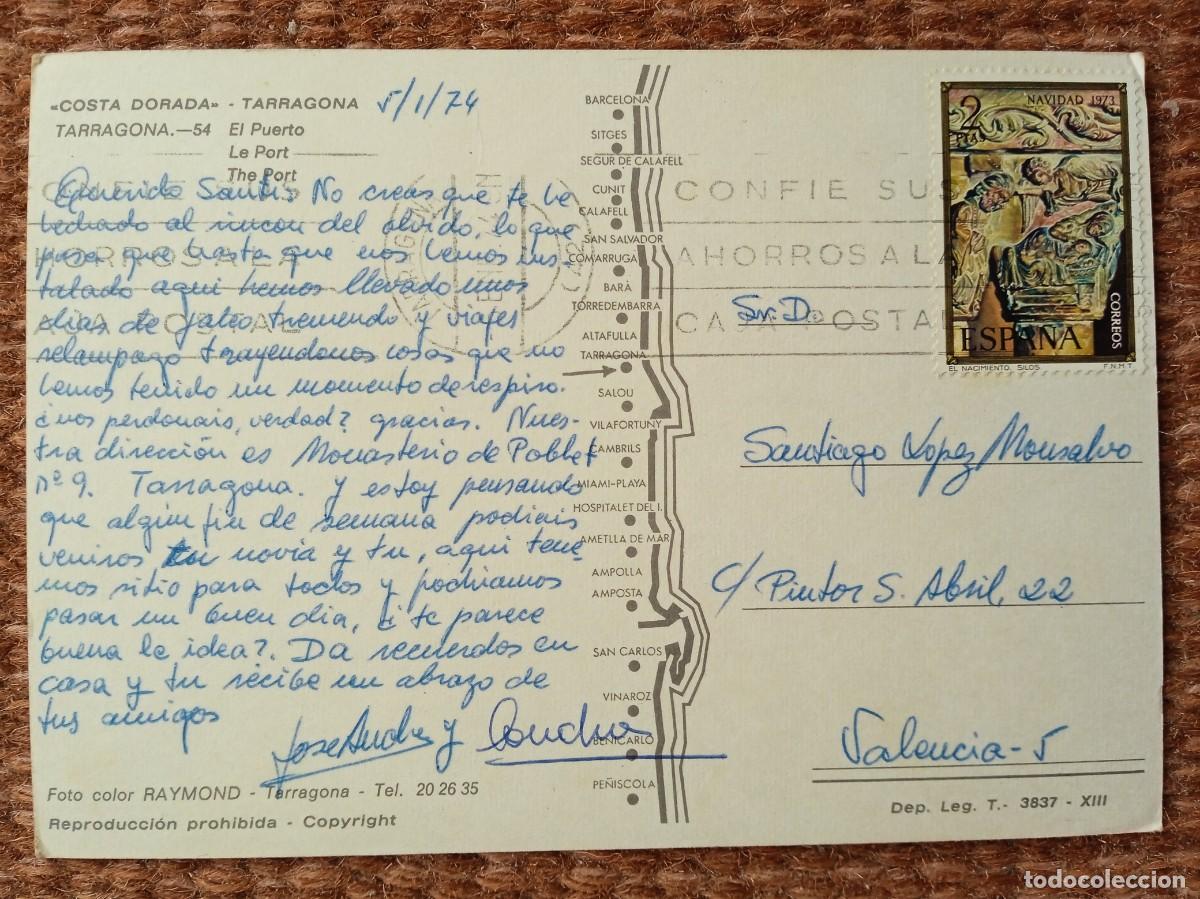 «COSTA DORADA» - TARRAGONA
TARRAGONA.—54 El Puerto
Le Port
The Port
5/1/74
Querido Santi: No creas que te he
hechado al rincon del olvido, lo que
pasa que hasta que nos hemos ins-
talado aqui hemos llevado unos
dias de jaleo tremendo y viajes
relampago trayendonos cosas que no
hemos tenido un momento de respiro.
¿nos perdonais, verdad? gracias. Nues-
tra dirección es Monasterio de Poblet
nº 9. Tarragona. y estoy pensando
que algun fin de semana podiais
veniros tu novia y tu, aqui tene-
mos sitio para todos y podriamos
pasar un buen dia, ¿i te parece
buena la idea?. Da recuerdos en
casa y tu recibe un abrazo de
tus amigos
Jose Andres y Concha
Foto color RAYMOND - Tarragona - Tel. 20 26 35
Reproducción prohibida - Copyright
BARCELONA
SITGES
SEGUR DE CALAFELL
CUNIT
CALAFELL
SAN SALVADOR
COMARRUGA
BARÁ
TORREDEMBARRA
ALTAFULLA
TARRAGONA
SALOU
VILAFORTUNY
CAMBRILS
MIAMI-PLAYA
HOSPITALET DEL I.
AMETLLA DE MAR
AMPOLLA
AMPOSTA
SAN CARLOS
VINAROZ
BENICARLO
PEÑISCOLA
CONFIE SUS
AHORROS A LA
CAJA POSTAL
2
PTAS
NAVIDAD 1973
CORREOS
ESPAÑA
EL NACIMIENTO. SILOS.
F.N.M.T.
Sr. D.
Santiago López Monsalvo
c/ Pintor S. Abril, 22
Valencia-5
Dep. Leg. T.- 3837 - XIII
todocoleccion